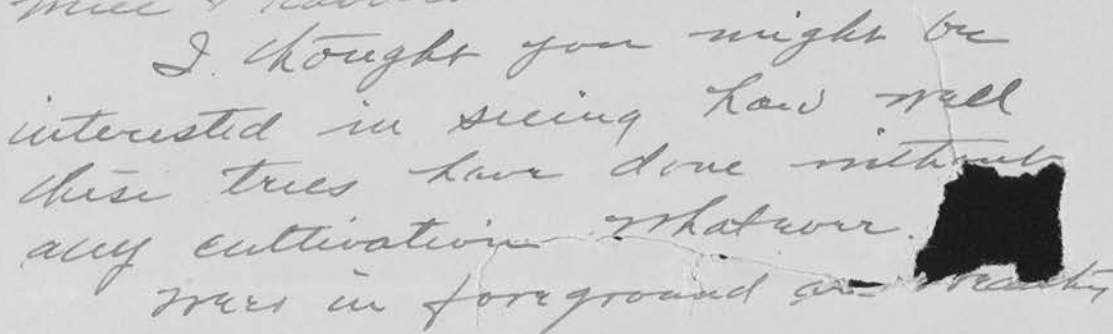 I thought you might be
interested in seeing how well
these trees have done without
any cultivation whatever.
in foreground are